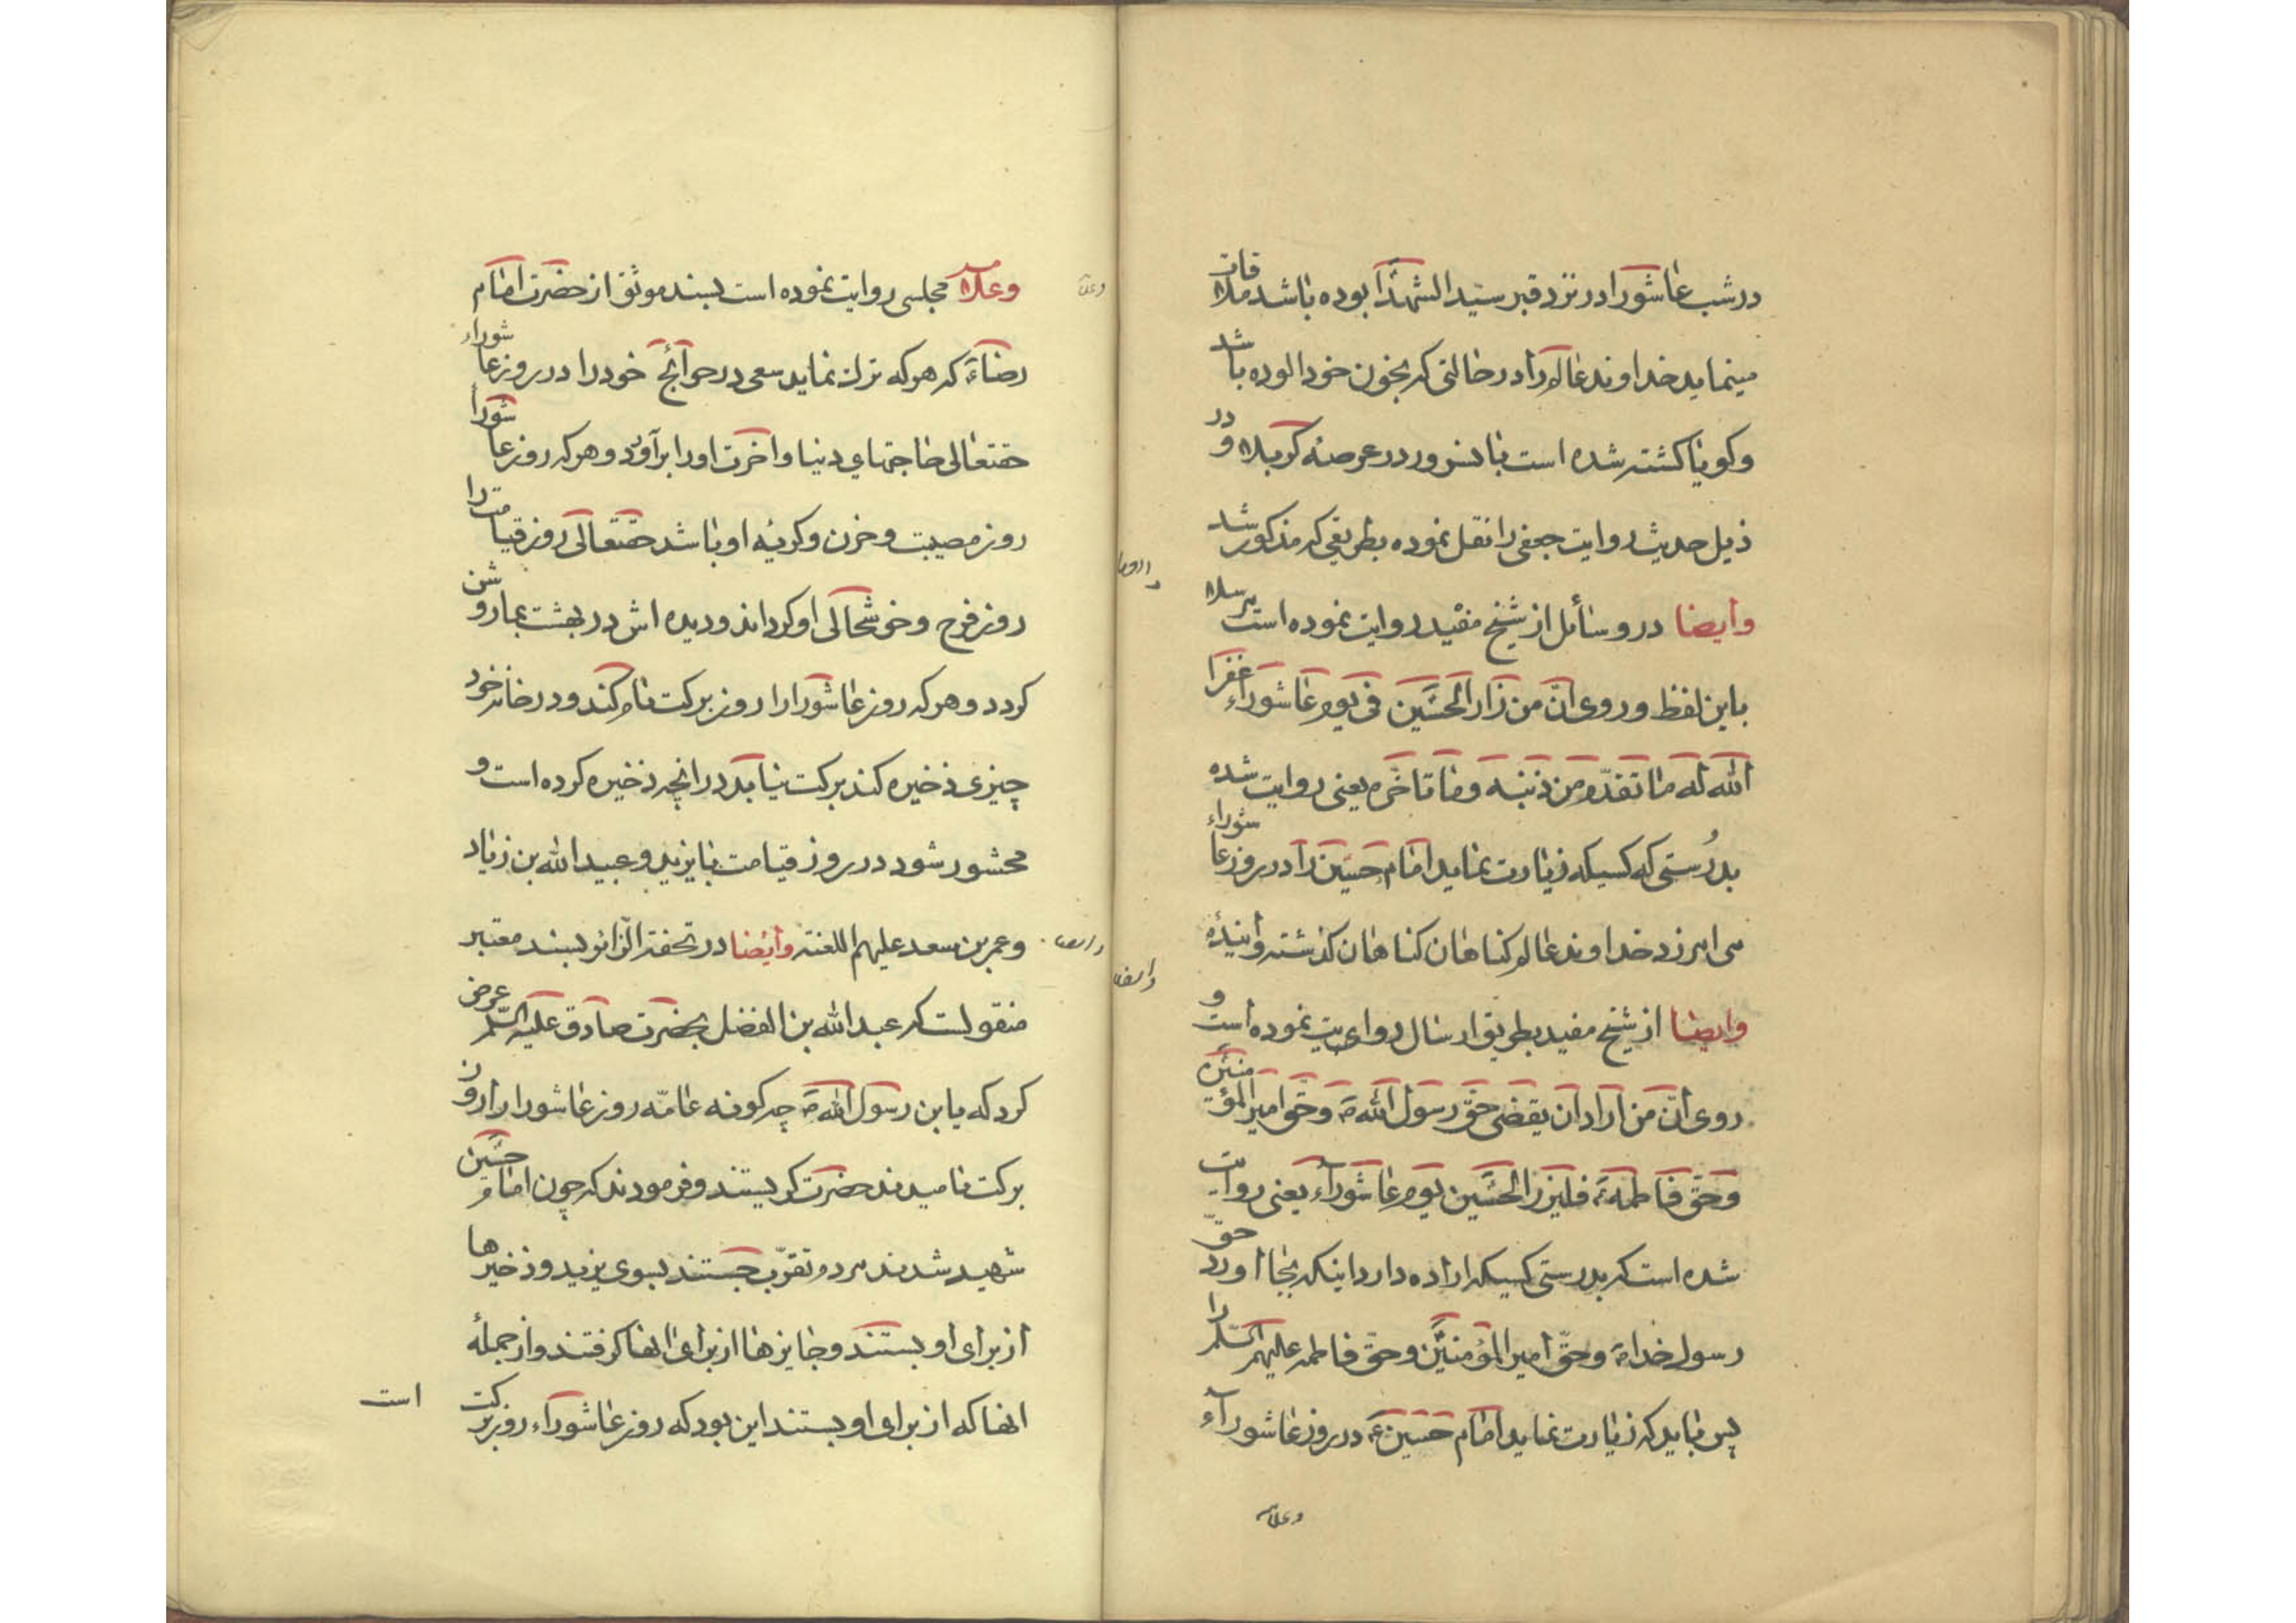 در شب عاشورا در نزد قبر سید الشهدا بوده باشد ملاقات
مینماید خداوند عالم را در حالتی که بخون خود الوده باشد
و کویا کشته شده است با انسرور در عرصهٔ کربلا و در
ذیل حدیث روایت جعفی را نقل نموده بطریقی که مذکور شد
وایضا در وسائل از شیخ مفید روایت نموده است مرسلا
باین لفظ و روی انّ من زار الحسین فی یوم عاشوراء غفر
الله له ما تقدّم من ذنبه و ما تاخّر یعنی روایت شده
بدرُستی که کسیکه زیارت نماید امام حسین را در روز عاشوراء
می امرزد خداوند عالم کناهان کناهان کذشته و آیندهٔ
وایضا از شیخ مفید بطریق ارسال روایت نموده است و
روی انّ من اراد ان یقضی حقّ رسول الله ص و حقّ امیر المؤمنین
و حقّ فاطمة ع فلیزر الحسین یوم عاشورآء یعنی روایت
شده است که بدرستی کسیکه اراده دارد اینکه بجا اورد حقّ
رسول خدا ص و حقّ امیر المؤمنین و حقّ فاطمه علیهم السّلم را
پس باید که زیارت نماید امام حسین ع در روز عاشورآء
وعلامه
وعلامه مجلسی روایت نموده است بسند موثق از حضرت امام
رضاء ع که هر که ترک نماید سعی در حوائج خود را در روز عاشوراء
حقتعالی حاجتهای دنیا و اخرت او را براورد و هر که روز عاشورا
روز مصیبت و حزن و کریهٔ او باشد حقتعالی روز قیامت را
روز فرح و خوشحالی او کرداند و دیده اش در بهشت بما روشن
کردد و هر که روز عاشورا را روز برکت نام کند و در خانه خود
چیزی ذخیره کند برکت نیابد در انچه ذخیره کرده است و
محشور شود در روز قیامت با یزید و عبید الله بن زیاد
و عمر بن سعد علیهم اللعنته وایضا در تحفة الزائر بسند معتبر
منقولست که عبد الله بن الفضل بحضرت صادق علیه السّلم عرض
کرد که یابن رسول الله ص چه کونه عامّه روز عاشورا را روز
برکت نامیدند حضرت کریستند و فرمودند که چون امام حسین
شهید شدند مردم تقرّب جستند بسوی یزید و ذخیرها
از برای او بستند و جایزها از برای انها کرفتند و از جملهٔ
انها که از برای او بستند این بود که روز عاشوراء روز برکت است